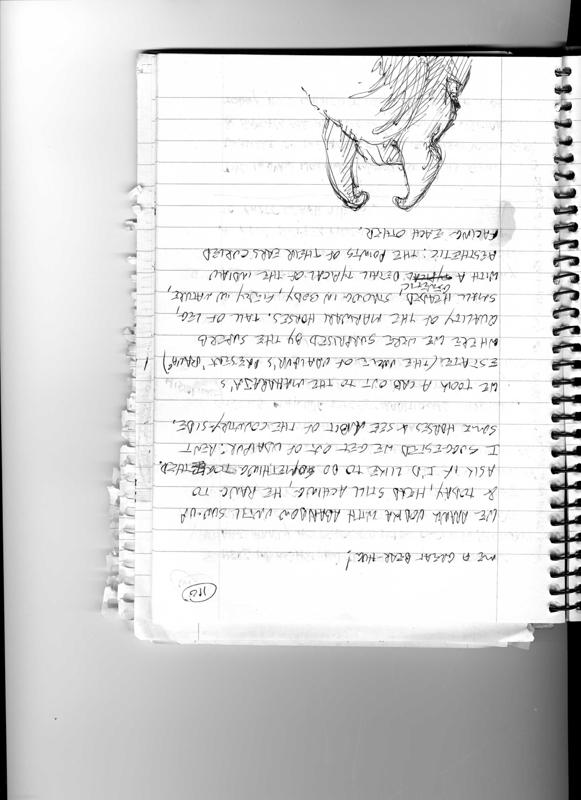 ME A GREAT BEAR-HUG!
WE DRANK VODKA WITH ABANDON UNTIL SUN-UP
& TODAY, HEAD STILL ACHING, HE RANG TO
ASK IF I'D LIKE TO DO SOMETHING TOGETHER.
I SUGGESTED WE GET OUT OF UDAIPUR: RENT
SOME HORSES & SEE A BIT OF THE COUNTRY-SIDE.
WE TOOK A CAB OUT TO THE MAHARAJA'S
ESTATE (THE UNCLE OF UDAIPUR'S PRESENT 'RANA')
WHERE WE WERE SURPRISED BY THE SUPERB
QUALITY OF THE MARWARI HORSES. TALL OF LEG,
SMALL HEADED, STRONG IN BODY, FIERY IN NATURE,
WITH A GENETIC DETAIL TYPICAL OF THE INDIAN
AESTHETIC: THE POINTS OF THEIR EARS CURLED
FACING EACH OTHER.